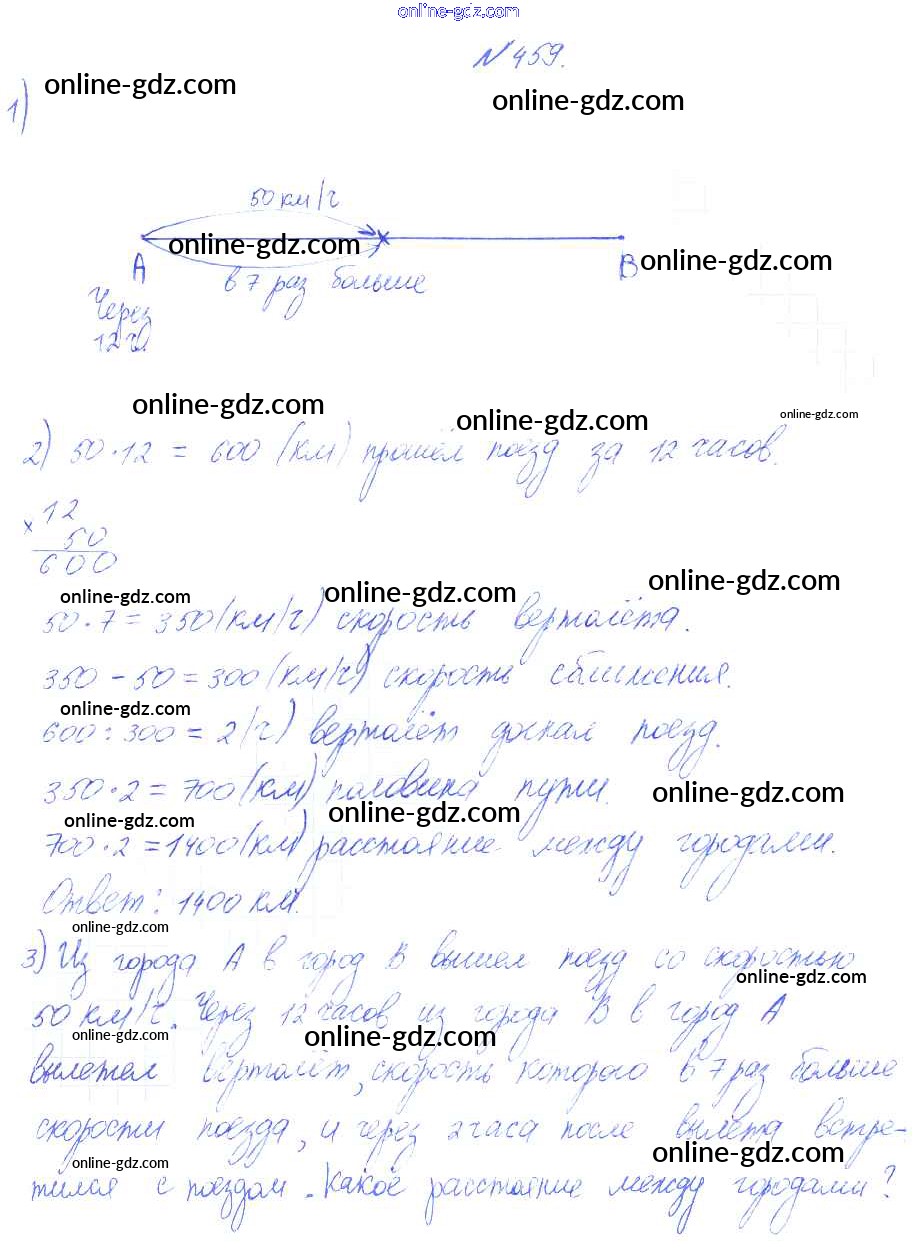 online-gdz.com
№459.
online-gdz.com
online-gdz.com
1)
50 км/ч
online-gdz.com
A
B
online-gdz.com
в 7 раз больше
Через
12 ч.
online-gdz.com
online-gdz.com
online-gdz.com
2) 50·12 = 600 (км) прошёл поезд за 12 часов.
× 12
50
600
online-gdz.com
online-gdz.com
online-gdz.com
50·7 = 350 (км/ч) скорость вертолёта.
350 - 50 = 300 (км/ч) скорость сближения.
online-gdz.com
600 : 300 = 2 (ч) вертолёт догнал поезд.
350·2 = 700 (км) половина пути.
online-gdz.com
online-gdz.com
online-gdz.com
700·2 = 1400 (км) расстояние между городами.
Ответ: 1400 км.
online-gdz.com
3) Из города А в город В вышел поезд со скоростью
online-gdz.com
50 км/ч. Через 12 часов из города В в город А
online-gdz.com
online-gdz.com
вылетел вертолёт, скорость которого в 7 раз больше
скорости поезда, и через 2 часа после вылета встре-
online-gdz.com
online-gdz.com
тился с поездом. Какое расстояние между городами?